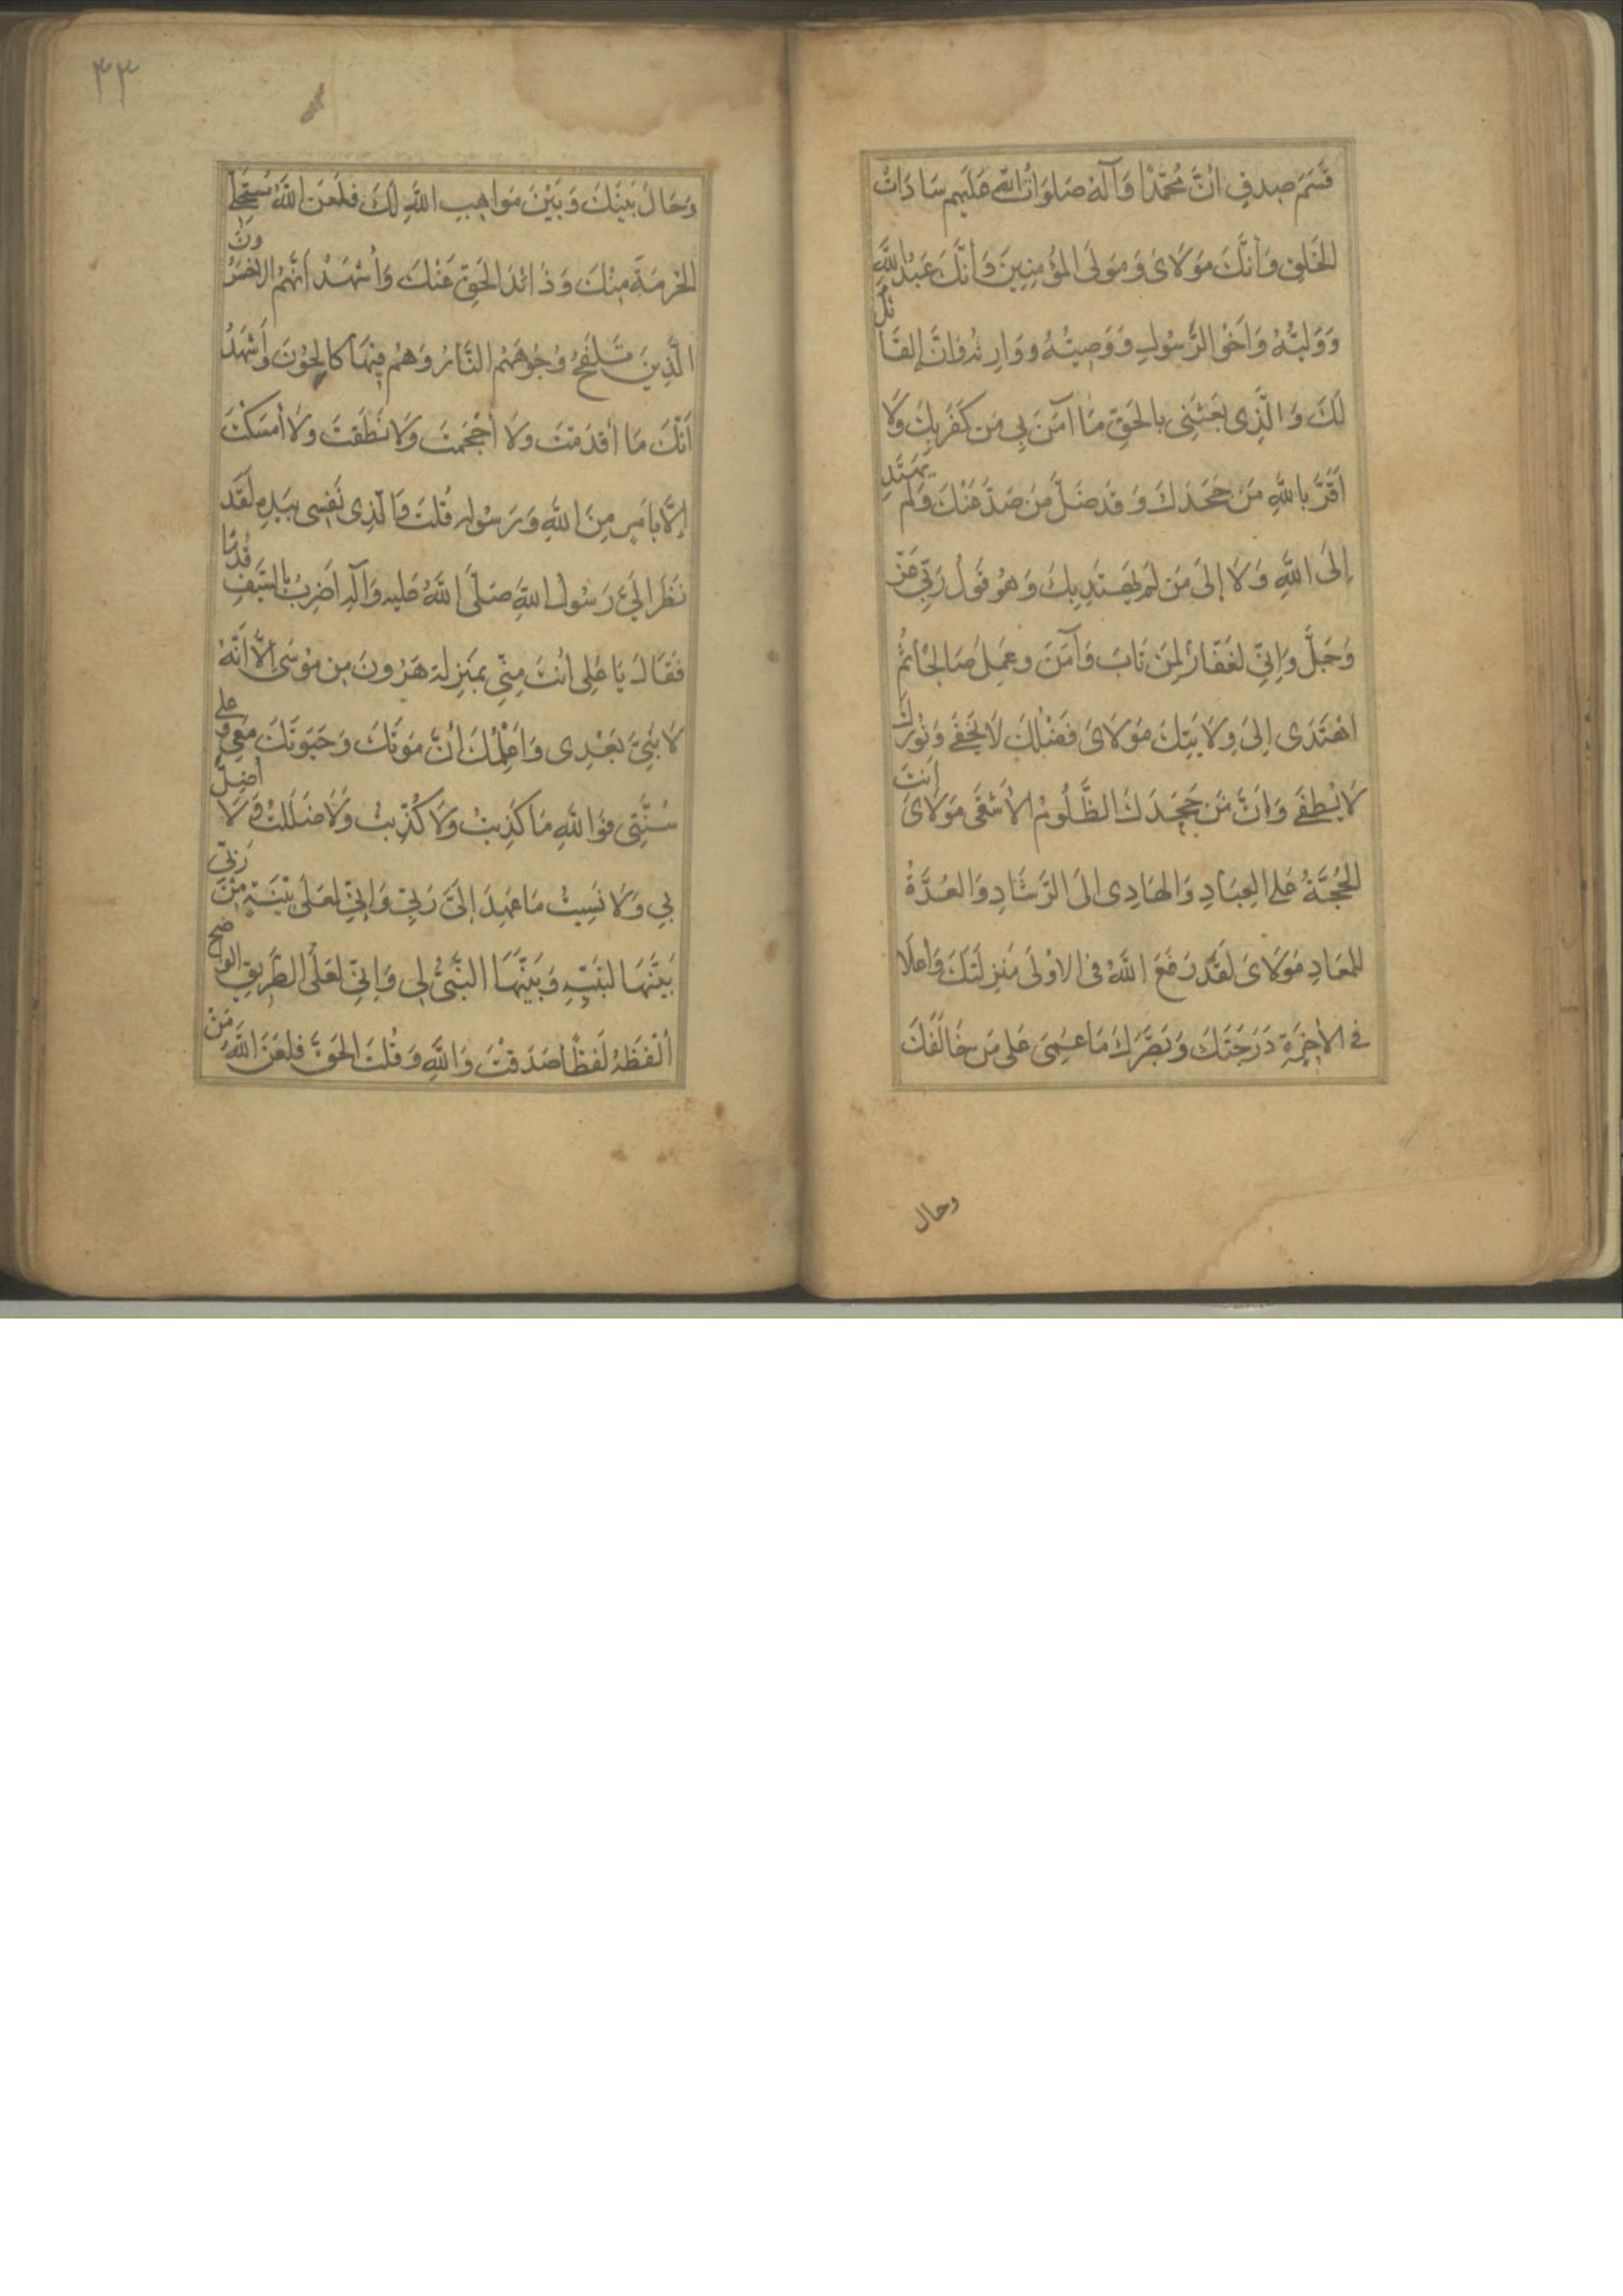 قَسَمَ صِدقٍ انَّ مُحَمَّدًا وَآلَهُ صَلَوَاتُ اللّٰهِ عَلَيهِم سَادَاتُ
الخَلقِ وَأَنَّكَ مَوْلَاىَ وَمَولَى المُؤمِنِينَ وَأَنَّكَ عَبْدُ اللّٰهِ
وَوَلِيُّهُ وَاَخُو الرَّسُولِ وَوَصِيُّهُ وَوَارِثُهُ وَانَّهُ القَائلُ
لَكَ وَالَّذِى بَعَثَنِى بِالحَقِّ مَا آمَنَ بِى مَن كَفَرَ بِكَ وَلَا
اَقَرَّ بِاللّٰهِ مَن جَحَدَكَ وَقَد ضَلَّ مَن صَدَّ عَنْكَ وَلَم يَهتَدِ
إِلَى اللّٰهِ وَلَا إِلَىَّ مَن لَم يَهتَدِ بِكَ وَهُوَ قَولُ رَبِّى عَزَّ
وَجَلَّ وَاِنِّى لَغَفَّارٌ لِمَن تَابَ وَآمَنَ وَعَمِلَ صَالِحًا ثُمَّ
اهْتَدَى اِلَى وِلَايَتِكَ مَوْلَاىَ فَضْلُكَ لَا يَخفَى وَنُورُكَ
لَا يُطفَى وَاَنَّ مَن جَحَدَكَ الظَّلُومُ الأَشقَى مَوْلَاىَ اَنتَ
الحُجَّةُ عَلَى العِبَادِ وَالهَادِى اِلَى الرَّشَادِ وَالعُدَّةُ
لِلمَعَادِ مَوْلَاىَ لَقَد رَفَعَ اللّٰهُ فِى الاُولَى مَنزِلَتَكَ وَاَعلَا
فِى الأخِرَةِ دَرَجَتَكَ وَبَصَّرَكَ مَا عَمِىَ عَلَى مَن خَالَفَكَ
وحال
۴۳
وَحَالَ بَينَكَ وَبَيْنَ مَوَاهِبِ اللّٰهِ لَكَ فَلَعَنَ اللّٰهُ مُستَحِلِّى
الحُرمَةِ مِنْكَ وَذَائدَ الحَقِّ عَنْكَ وَأَشْهَدُ اَنَّهُمُ الاَخسَرُونَ
الَّذِينَ تَلفَحُ وُجُوهَهُمُ النَّارُ وَهُم فِيهَا كَالِحُوْنَ وَاَشهَدُ
اَنَّكَ مَا أَقدَمْتَ وَلَا أَحْجَمتَ وَلَا نَطَقتَ وَلَا أَمسَكْتَ
إِلَّا بِاَمرٍ مِنَ اللّٰهِ وَرَسُولِهِ قُلتَ وَالَّذِى نَفسِى بِيَدِهِ لَقَد
نَظَرَ اِلَىَّ رَسُولُ اللّٰهِ صَلَّى اللّٰهُ عَلَيهِ وَآلِهِ اَضرِبُ بِالسَّيفِ قُدُمًا
فَقَالَ يَا عَلِى أَنتَ مِنِّى بِمَنزِلَةِ هَرُونَ مِن مُوْسَى اِلَّا اَنَّهُ
لَا نَبِىَّ بَعْدِى وَاُعلِمُكَ اَنَّ مَوتَكَ وَحَيَوتَكَ مَعِى وَعَلَى
سُنَّتِى فَوَاللّٰهِ مَا كَذِبتُ وَلَا كُذِّبتُ وَلَا ضَلَلتُ وَلَا أُضِلَّ
بِى وَلَا نَسِيتُ مَا عَهِدَ اِلَىَّ رَبِّى وَاِنِّى لَعَلَى بَيِّنَةٍ مِنْ رَبِّى
بَيَّنَهَا لِنَبِيِّهِ وَبَيَّنَهَا النَّبِىُّ لِى وَاِنِّى لَعَلَى الطَّرِيقِ الوَاضِحِ
أَلْفَظُهُ لَفظًا صَدَقتَ وَاللّٰهِ وَقُلتَ الحَقَّ فَلَعَنَ اللّٰهُ مَنْ